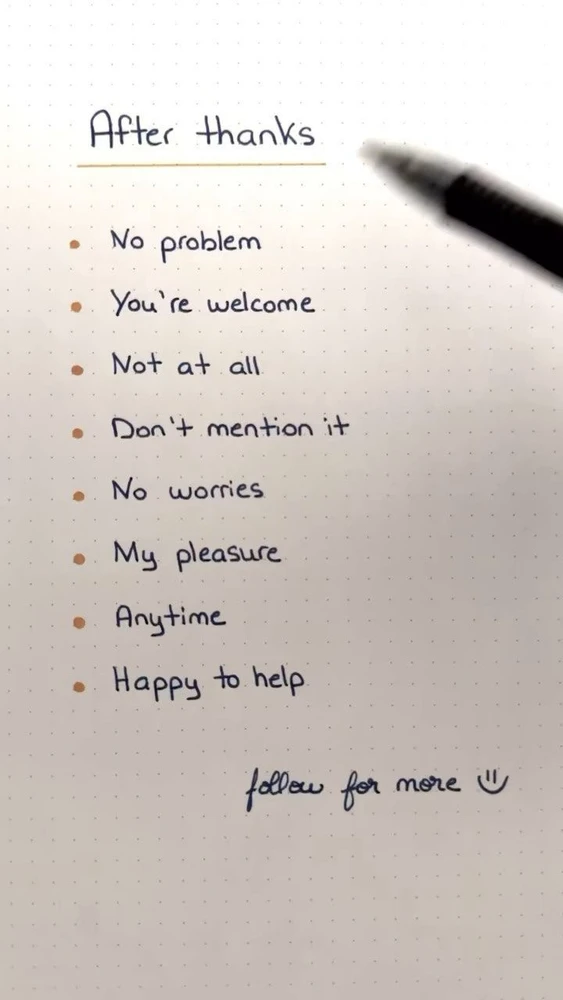 After thanks
No problem
You're welcome
Not at all
Don't mention it
No worries
My pleasure
Anytime
Happy to help
follow for more